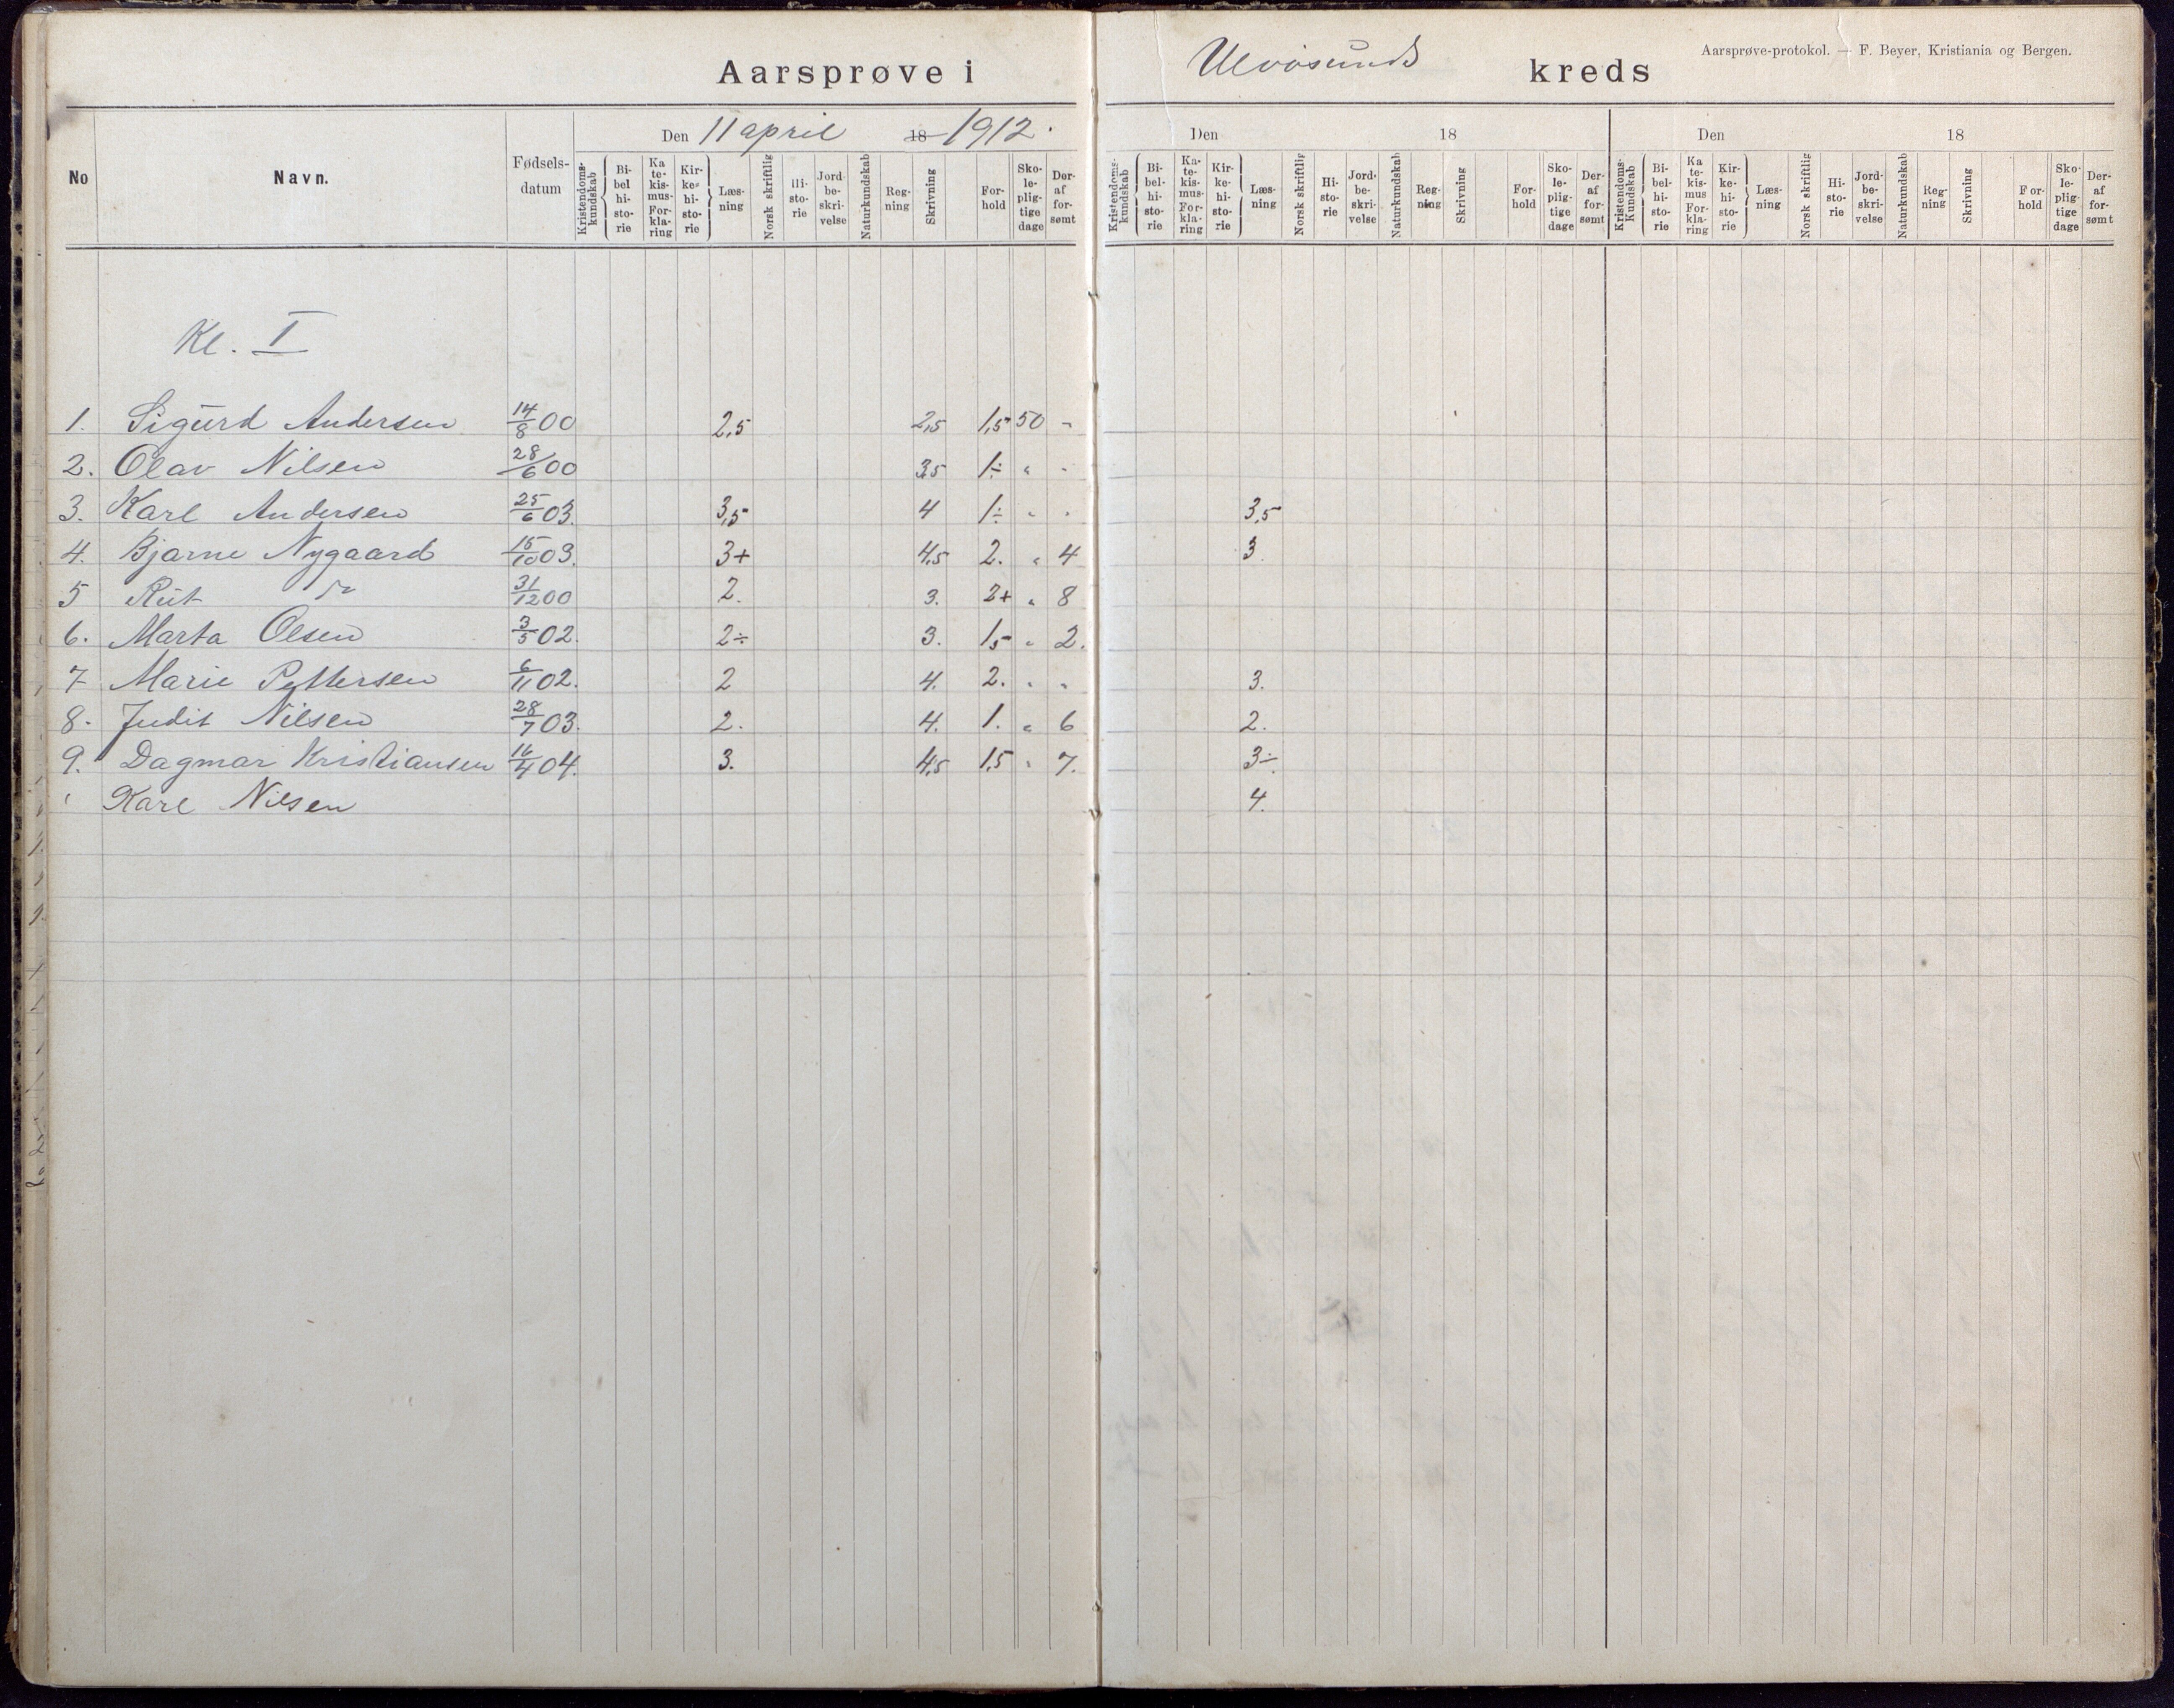 Aarsprøve i Ulvøsunds kreds
Aarsprøve-protokol. — F. Beyer, Kristiania og Bergen.
No Navn. Fødsels-datum Den 11 april 18 1912. Den 18 Den 18
Kristendoms-kundskab Bi-bel hi-sto-rie Ka te-kis-mus-For-kla-ring Kir-ke-hi-sto-rie Læs-ning Norsk skriftlig Hi-sto-rie Jord-be-skri-velse Naturkundskab Reg-ning Skrivning For-hold Sko-le-plig-tige dage Der-af for-sømt
Kristendoms-kundskab Bi-bel-hi-sto-rie Ka-te-kis-mus-For-kla-ring Kir-ke-hi-sto-rie Læs-ning Norsk skriftlig Hi-sto-rie Jord-be-skri-velse Naturkundskab Reg-ning Skrivning For-hold Sko-le-plig-tige dage Der-af for-sømt
Kristendoms-Kundskab Bi-bel-hi-sto-rie Ka te-kis-mus For-kla-ring Kir-ke-hi-sto-rie Læs-ning Norsk skriftlig Hi-sto-rie Jord-be-skri-velse Naturkundskab Reg-ning Skrivning For-hold Sko-le-plig-tige dage Der-af for-sømt
Kl. I
1. Sigurd Andersen 14/8 00 2,5 2,5 1,5 50 -
2. Olav Nilsen 28/6 00 3,5 1÷ " -
3. Karl Andersen 25/6 03. 3,5 4 1÷ " - 3,5
4. Bjarne Nygaard 15/10 03. 3+ 4,5 2. " 4 3
5 Rut 31/12 00 2. 3. 2+ " 8
6. Marta Olsen 3/5 02. 2÷ 3. 1,5 " 2.
7 Marie Pettersen 6/11 02. 2 4. 2. " " 3.
8. Judit Nilsen 28/7 03. 2. 4. 1. " 6 2.
9. Dagmar Kristiansen 16/4 04. 3. 4,5 1,5 " 7. 3÷
Karl Nilsen 4.